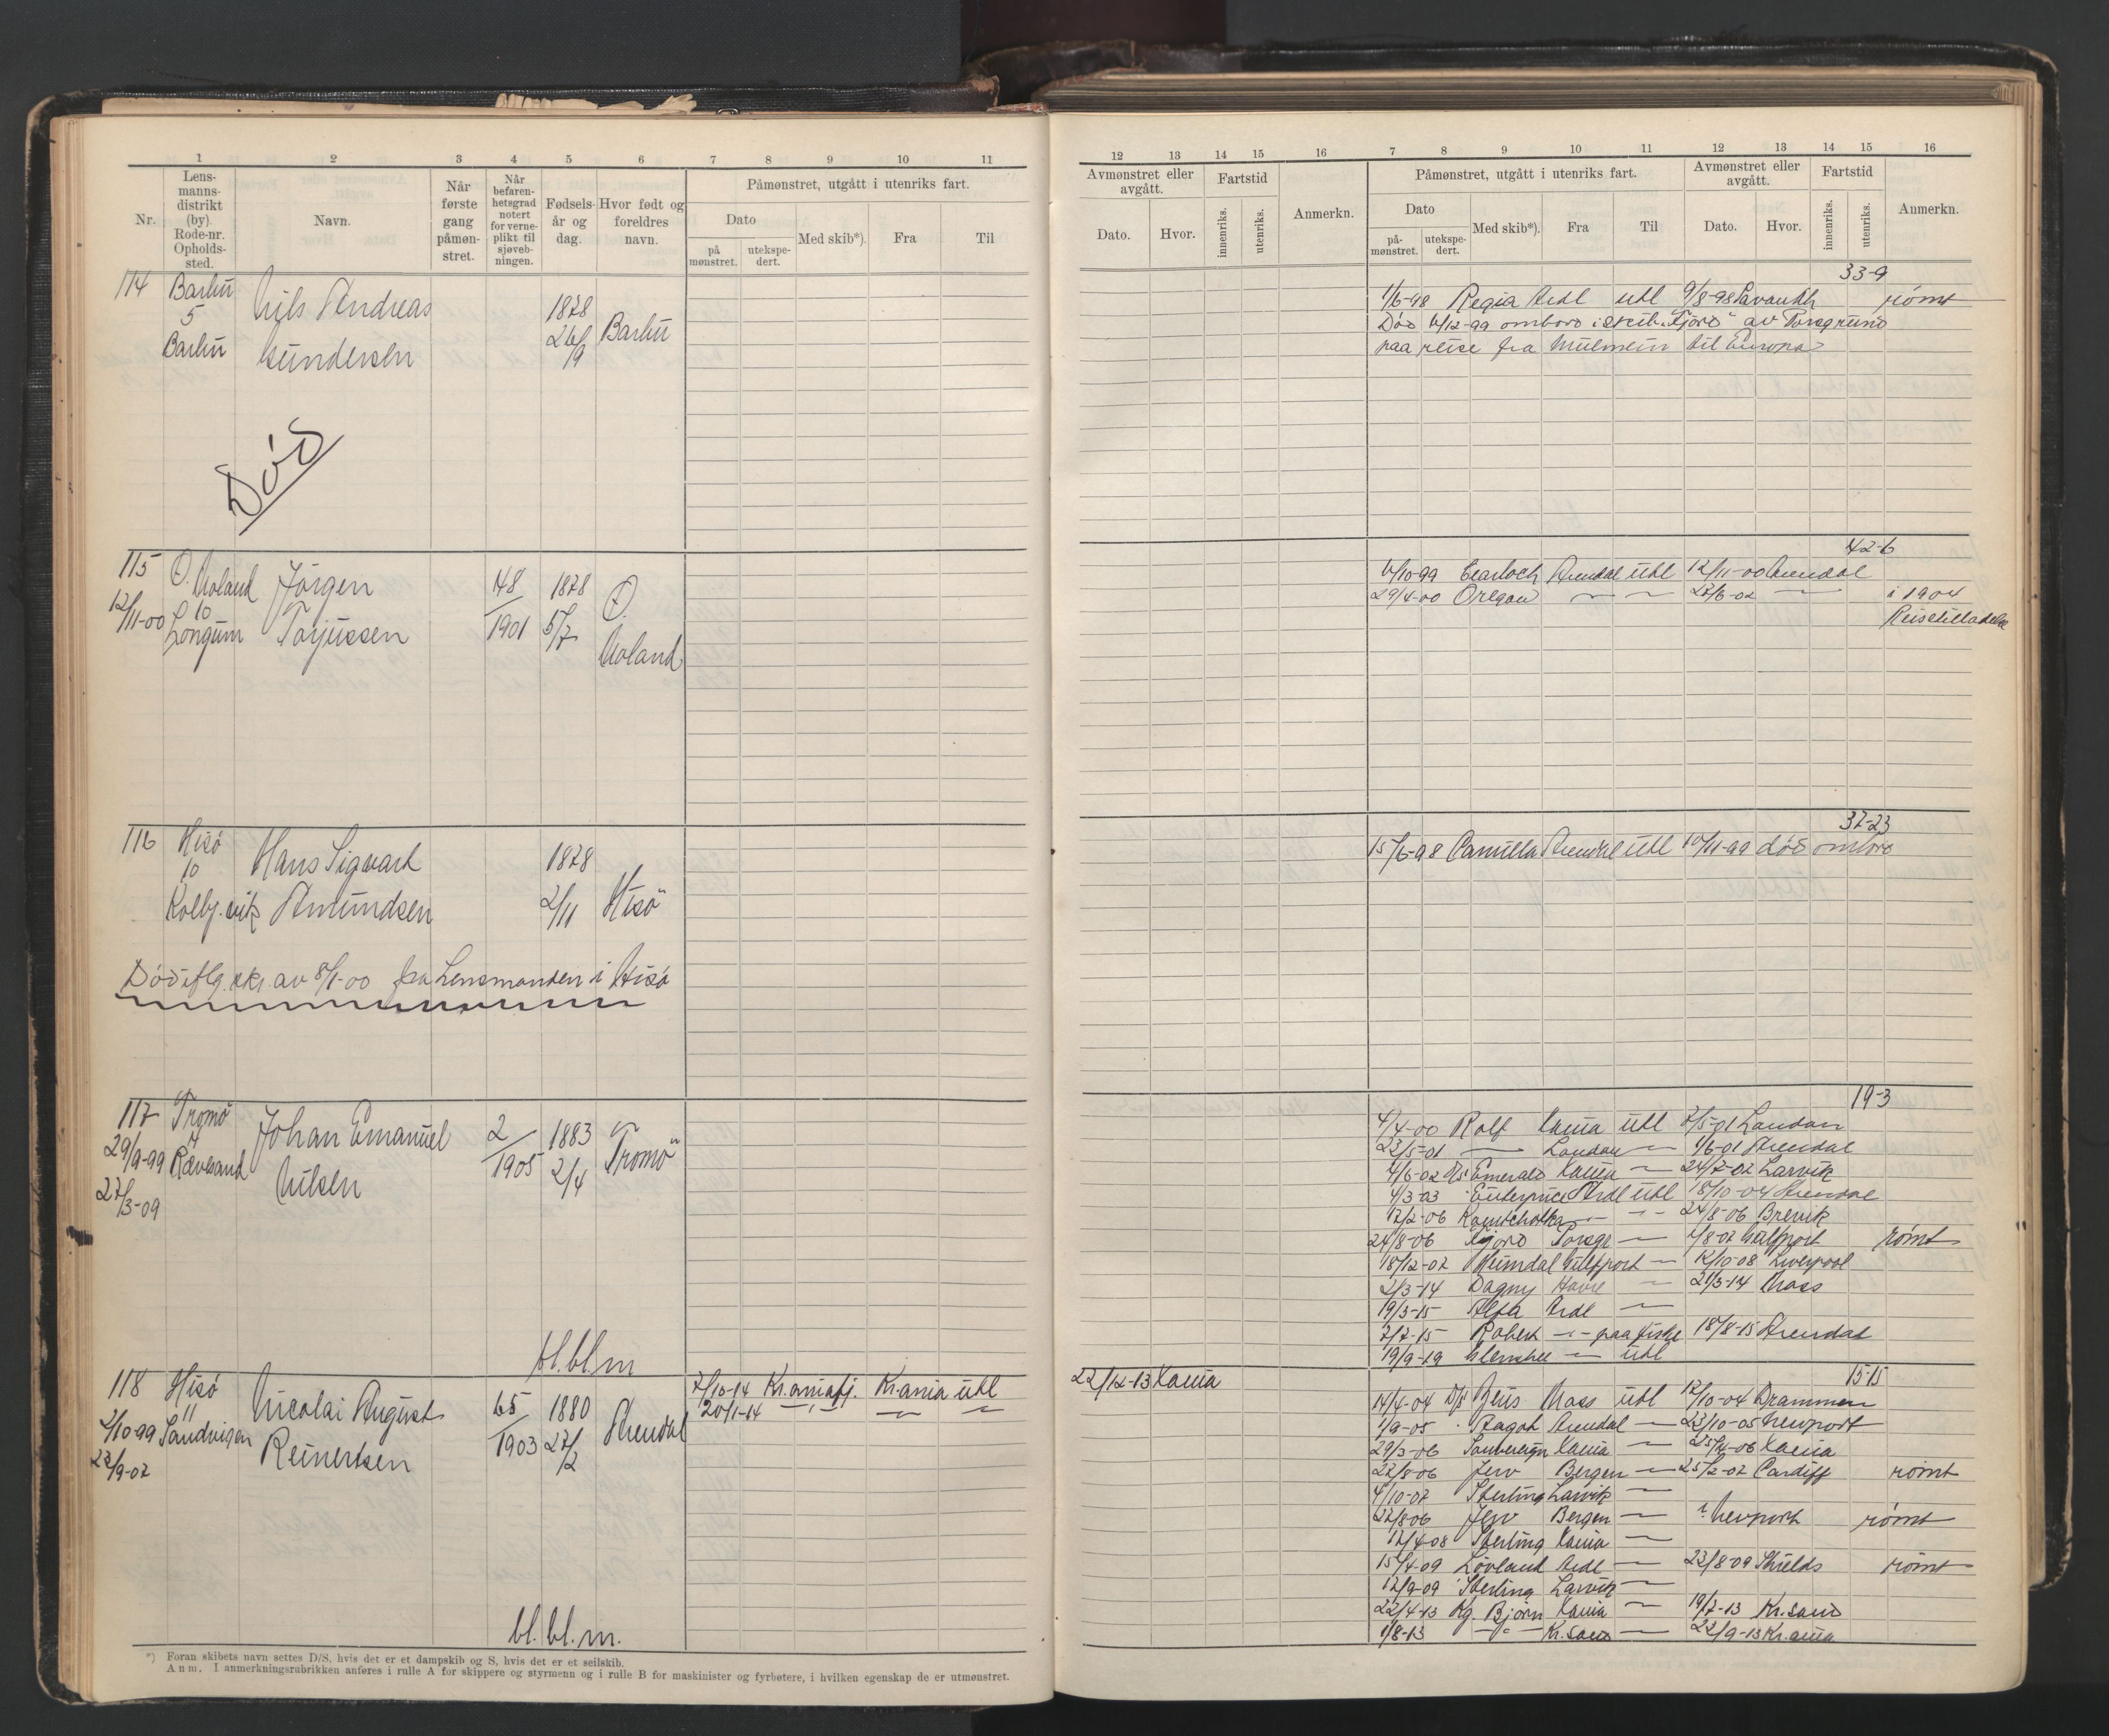 1 2 3 4 5 6 7 8 9 10 11
Nr.
Lens-
manns-
distrikt
(by).
Rode-nr.
Opholds-
sted.
Navn.
Når
første
gang
påmøn-
stret.
Når
befaren-
hetsgrad
notert
for verne-
plikt til
sjøveb-
ningen.
Fødsels-
år og
dag.
Hvor født og
foreldres
navn.
Påmønstret, utgått i utenriks fart.
Dato
på
mønstret.
utekspe-
dert.
Med skib*).
Fra
Til
114 Barbu
5
Barbu
Nils Andreas
Gundersen
1878
26/9
Barbu
Død
115 Ø. Moland
10
12/11-00 Longum
Jörgen
Torjussen
48
1901
1878
5/7
Ø.
Moland
116 Hisö
10
Kolbj.vik
Hans Sigvart
Amundsen
1878
2/11
Hisö
Död iflg. skr. av 8/1-00 fra Lensmanden i Hisö
117 Tromö
4
29/9-99 Rævesand
27/3-09
Johan Emanuel
Nilsen
2
1905
1883
2/4
Tromö
bl.bl.m
118 Hisö
11
2/10-99 Sandvigen
23/9-07
Nicolai August
Reinertsen
65
1903
1880
27/2
Arendal
7/10-14 Kr.aniafj. Kr.ania utl
20/1-14
bl.bl.m.
*) Foran skibets navn settes D/S, hvis det er et dampskib og S, hvis det er et seilskib.
Anm. I anmerkningsrubrikken anføres i rulle A for skippere og styrmenn og i rulle B for maskinister og fyrbøtere, i hvilken egenskap de er utmønstret.
12 13 14 15 16 7 8 9 10 11 12 13 14 15 16
Avmønstret eller
avgått.
Dato.
Hvor.
Fartstid
innenriks.
utenriks.
Anmerkn.
Påmønstret, utgått i utenriks fart.
Dato
på-
mønstret.
utekspe-
dert.
Med skib*).
Fra
Til
Avmønstret eller
avgått.
Dato.
Hvor.
Fartstid
innenriks.
utenriks.
Anmerkn.
33-9
1/6-98 Regia Ardl utl 9/8-98 Savanah römt
Död 4/12-99 ombord i skib "Fjord" av Porsgrund
paa reise fra Mulmein til Europa
42-6
4/10-99 Gearloch Arendal utl 12/11-00 Arendal
29/4-00 Oregon 27/6-02 i 1904
Reisetilladelse
37-23
15/6-98 Camilla Arendal utl 10/11-99 död ombord
19-3
4/4-00 Rolf Xania utl 7/5-01 London
23/5-01 London 1/6-01 Arendal
4/6-02 D/S Emerald Xania 24/7-02 Larvik
4/3-03 Euterpnice Ardl utl 18/10-04 Arendal
12/2-06 Kamtchatka 24/8-06 Brevik
24/8-06 Fjord Porsgr 1/8-07 Gulfport römt
18/12-07 Heimdal Gulfport 12/10-08 Liverpool
2/3-14 Dagny Havre 21/3-14 Moss
19/3-15 Alfa Ardl
7/7-15 Robert paa fiske 18/8-15 Arendal
19/9-19 Glenshee utl
22/12-13 Xania
15-15
14/4-04 D/S Zeus Moss utl 12/10-04 Drammen
1/9-05 Ragot Arendal 23/10-05 Newport
29/3-06 Souvereign Xania 25/4-06 Xania
22/8-06 Jerv Bergen 25/2-07 Cardiff römt
4/10-07 Sterling Larvik
22/8-06 Jerv Bergen i Newport römt
12/4-08 Sterling Xania
15/4-09 Lovland Ardl 23/8-09 Shields römt
12/9-09 Sterling Larvik
22/4-13 Kg. Björn Xania 19/7-13 Kr.sand
1/8-13 Kr.sand 22/9-13 Kr.ania